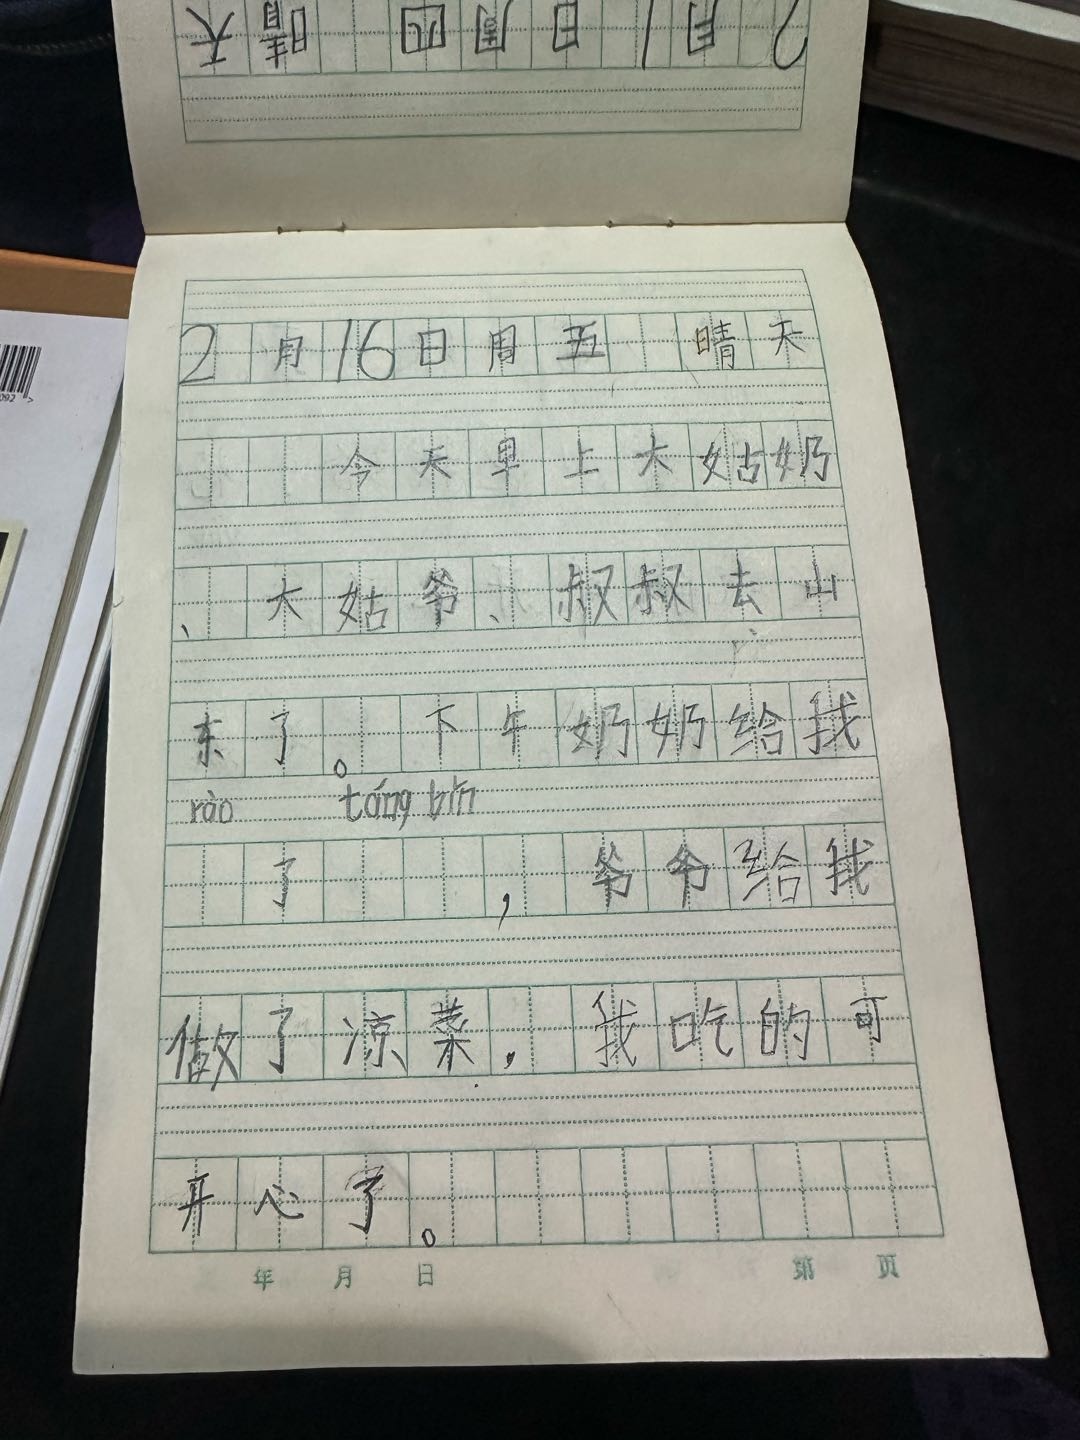 2月1日星四 晴天
2月16日周五 晴天
今天早上大姑奶
、大姑爷、叔叔去山
东了。下午奶奶给我
rào táng bǐn
了 ,爷爷给我
做了凉菜,我吃的可
开心了。
年 月 日 第 页